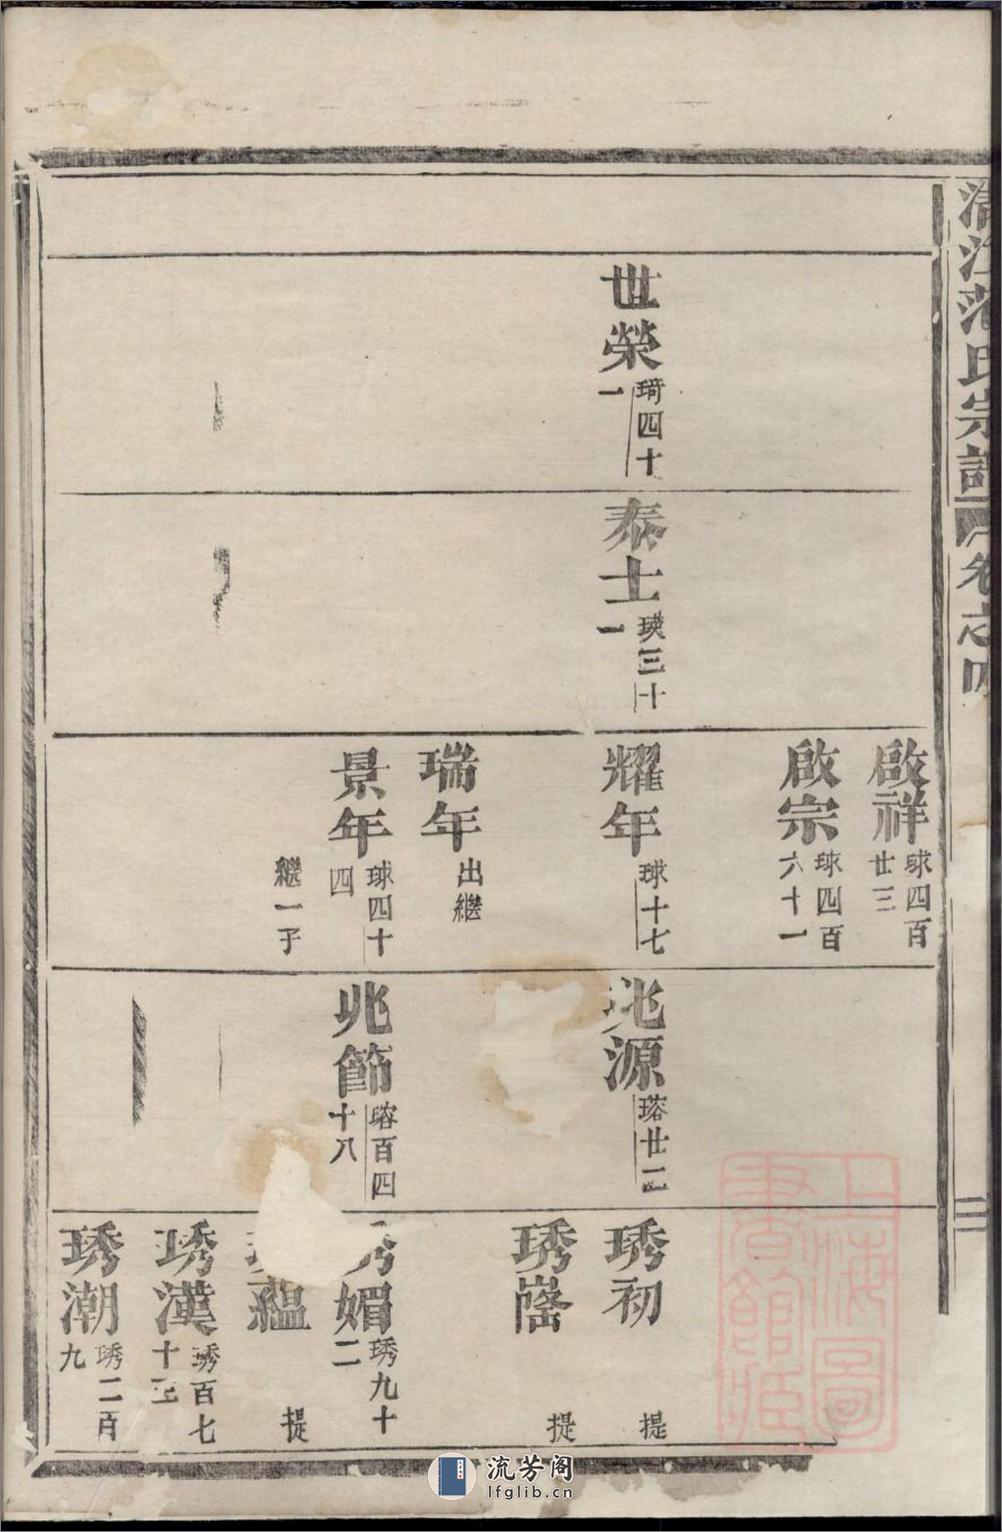 江范氏宗譜
卷之四
三
世榮 琦四十一
泰士 瑛三十一
啟祥 球四百廿三
啟宗 球四百六十一
耀年 球十七
瑞年 出繼
景年 球四十四
繼一子
兆源 瑢廿二
兆節 瑢百四十八
琇初 提
琇 提
媚 琇九十二
蘊 提
琇漢 琇百七十三
琇潮 琇二百九
上海圖書館藏
流芳阁
lfglib.cn